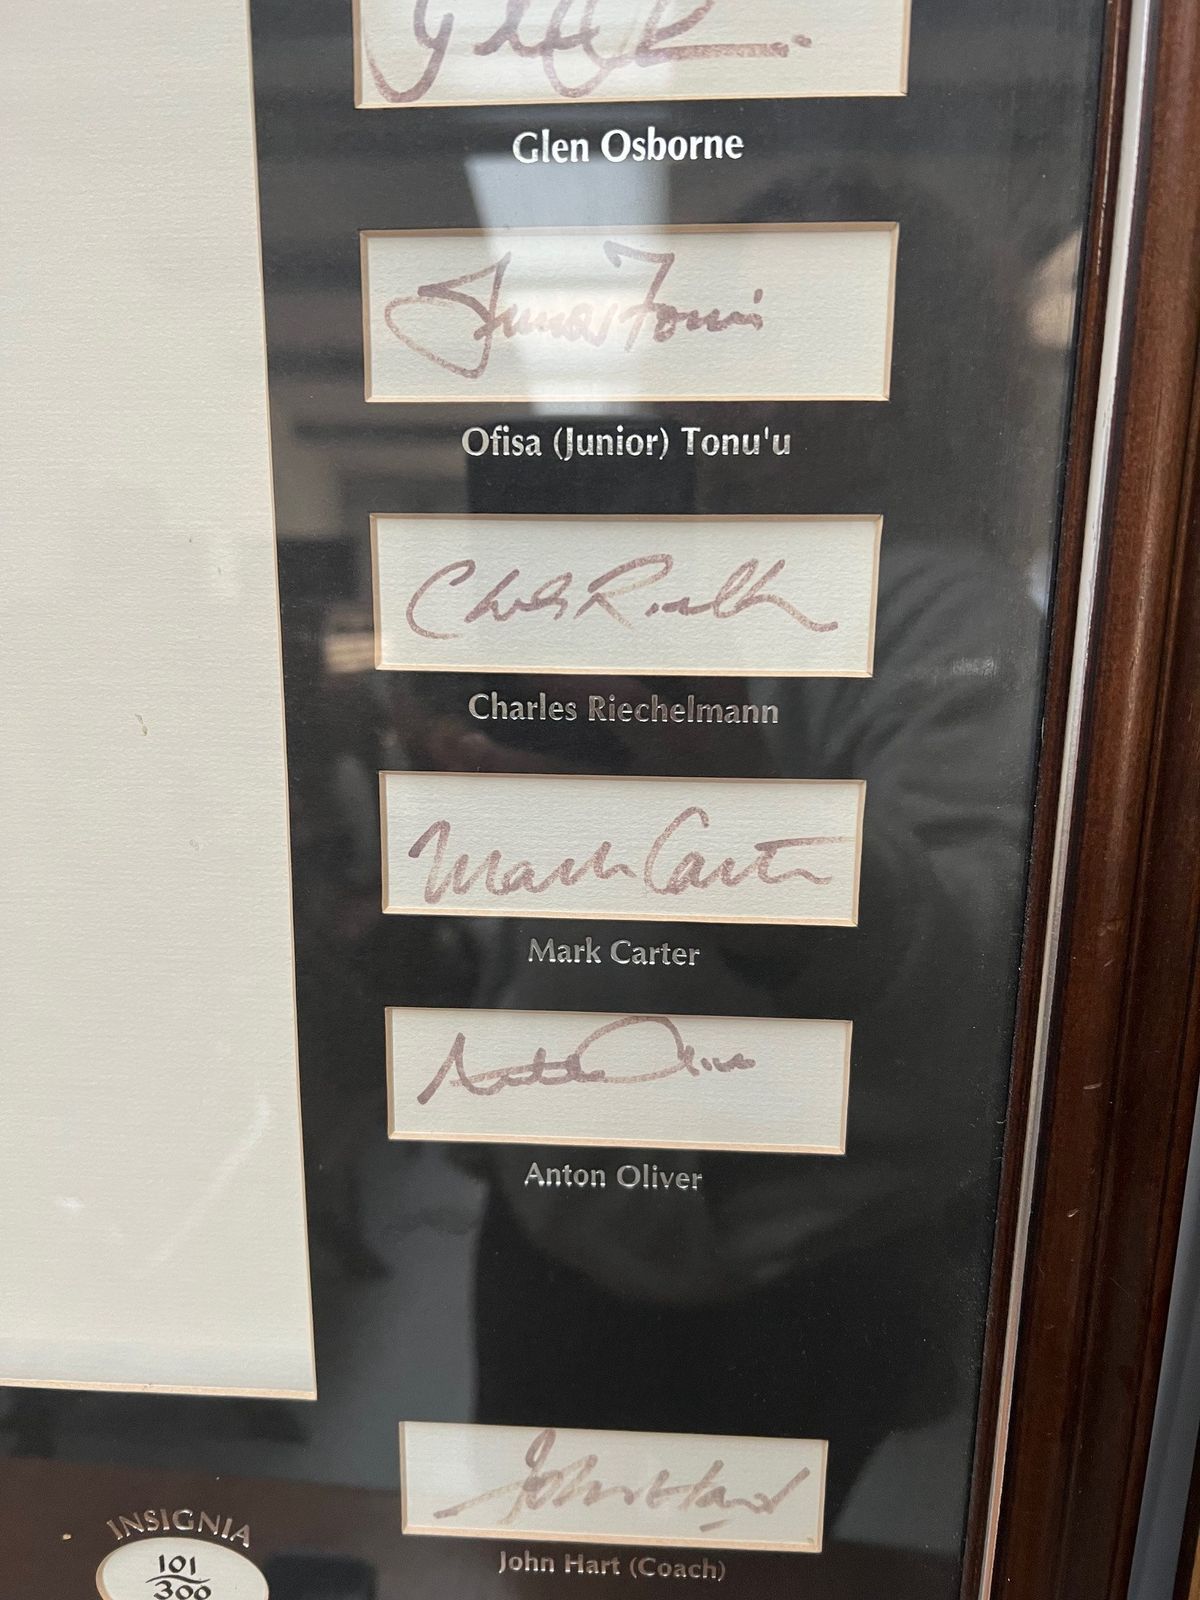 Glen Osborne
Junior Tonu'u
Ofisa (Junior) Tonu'u
Charles Riechelmann
Charles Riechelmann
Mark Carter
Mark Carter
Anton Oliver
Anton Oliver
John Hart
John Hart (Coach)
INSIGNIA
101
300